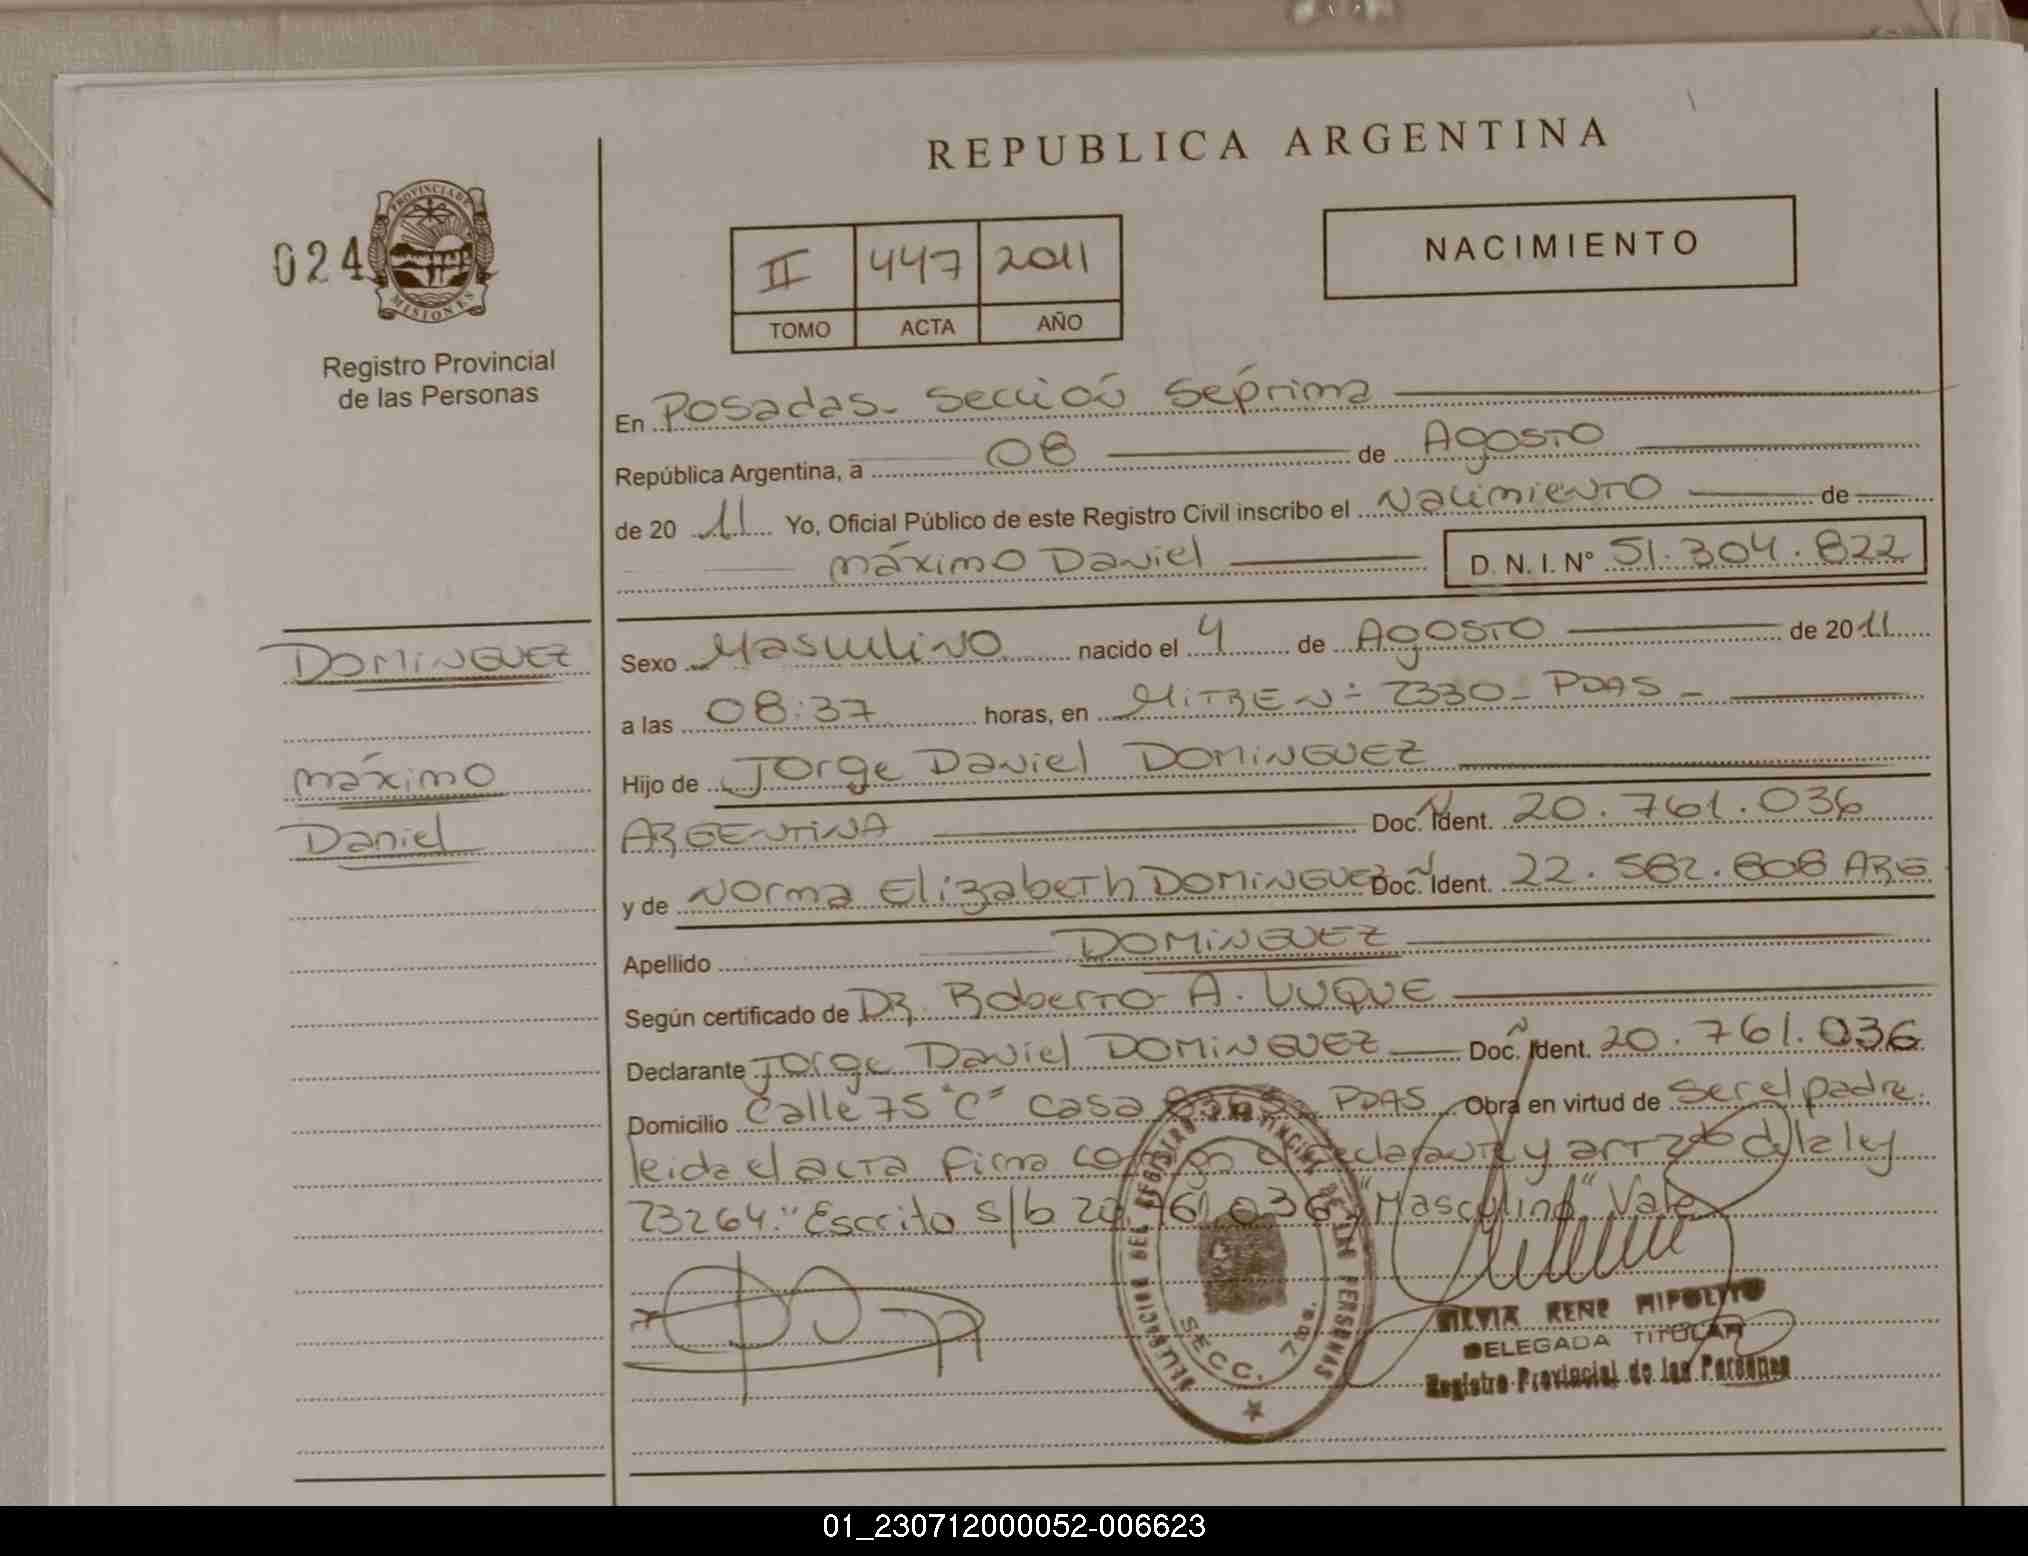 REPUBLICA ARGENTINA
024
PROVINCIA DE
MISIONES
Registro Provincial
de las Personas
II 447 2011
TOMO ACTA AÑO
NACIMIENTO
En Posadas - Sección Séptima
República Argentina, a 08 de Agosto
de 2011 Yo, Oficial Público de este Registro Civil inscribo el Nacimiento de
máximo Daniel D. N. I. Nº 51.304.822
DOMINGUEZ
máximo
Daniel
Sexo Masculino nacido el 4 de Agosto de 2011
a las 08:37 horas, en MITRE Nº 2330 - PDAS -
Hijo de Jorge Daniel DOMINGUEZ
ARGENTINA Doc. Ident. 20.761.036
y de Norma Elizabeth DOMINGUEZ Doc. Ident. 22.582.808 ARG
Apellido DOMINGUEZ
Según certificado de DR. Roberto A. LUQUE
Declarante Jorge Daniel DOMINGUEZ Doc. Ident. 20.761.036
Domicilio Calle 75 "C" casa PDAS Obra en virtud de ser el padre.
leida el acta firma el declarante y art de la ley
23264. "Escrito s/b 20.761.036, "Masculino" Vale
DELEGACION DEL REGISTRO PROVINCIAL DE LAS PERSONAS
SECC. 7ma.
SILVIA RENE HIPOLITO
DELEGADA TITULAR
Registro Provincial de las Personas
01_230712000052-006623